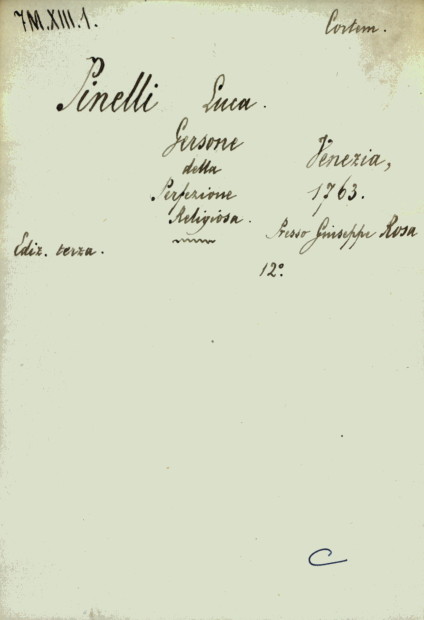 7M.XIII.1.
Cortem.
Pinelli Luca.
Gersone
della
Perfezione
Religiosa.
Venezia,
1763.
Presso Giuseppe Rosa
Ediz. terza.
12°.
C